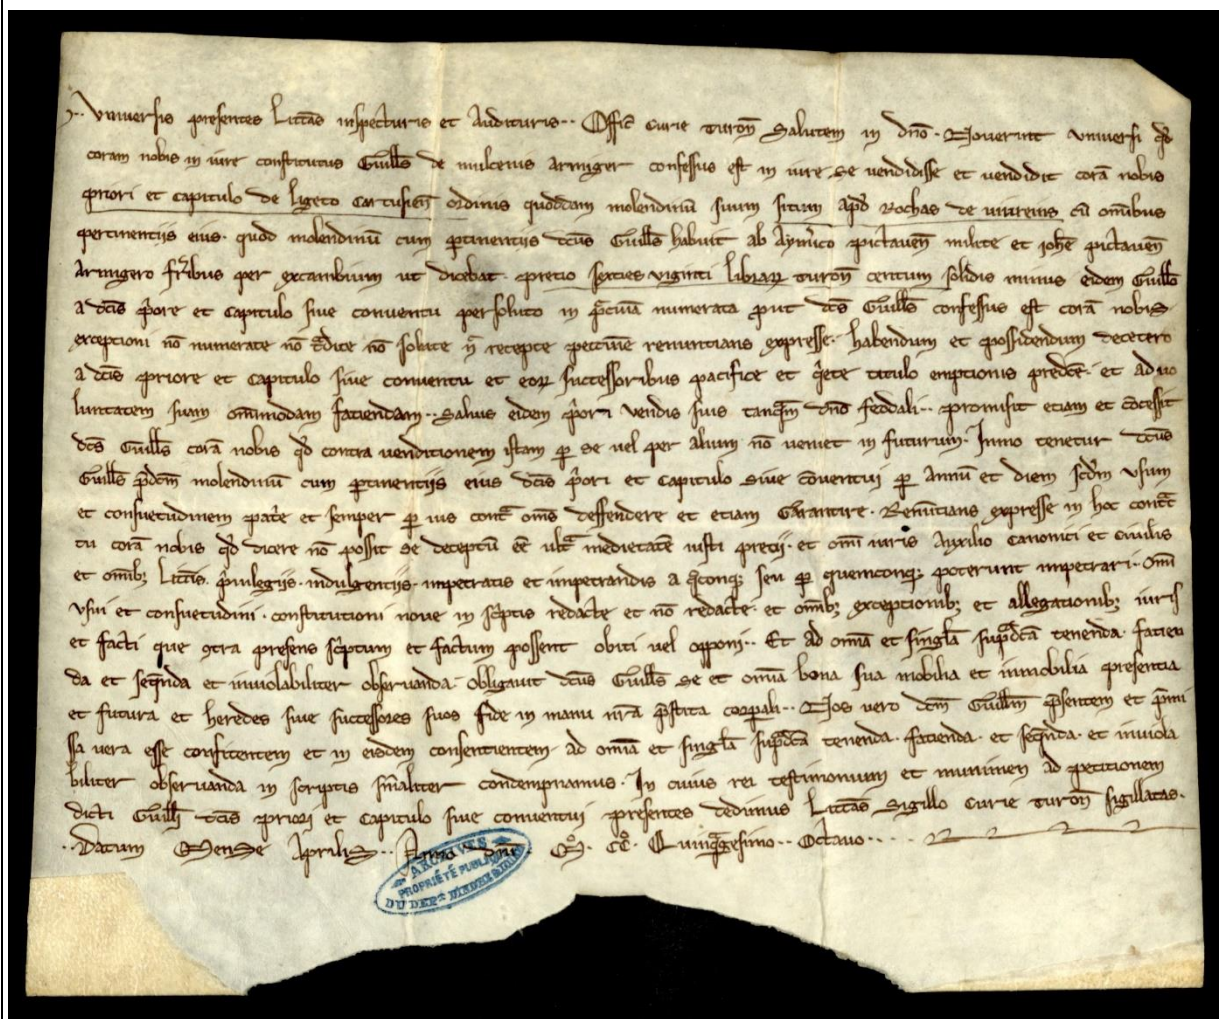 Universis presentes litt̄as inspecturis et audituris·· Offic̄ curie turon̄ Salutem in dn̄o· Noverint universi qd̄
coram nobis in iure constitutus Guill̄s de mulceiis armiger confessus est in iure se vendidisse et vendidit corā nobis
priori et capitulo de ligeto cartusien̄ ordinis quoddam molendinū suum situm apd̄ Rochas de cū om̄ibus
pertinentiis eius· quod molendinū cum p̱tinentiis dc̄us Guill̄s habuit ab Aym̄ico pictaven̄ milite et ioh̄e pictaven̄
armigero fr̄ibus per excambium ut dicebat· pretio sexties viginti librar̄ turon̄ centum solidis minus eidem Guill̄o
a dc̄is p̄ore et capitulo sive conventu persoluto in p̄cunia numerata put dc̄s Guill̄s confessus est corā nobis·
exceptioni nō numerate nō t̄dite nō solute n̄ recepte peccunie renuntians expresse· habendum et possidendum decetero
a dc̄is priore et capitulo sive conventu et eor̄ successoribus pacifice et q̄ete titulo emptionis predc̄e· et ad vo
luntatem suam om̄imodam faciendam·· Salvis eidem p̄ori vendis suis tanq̄m dn̄o feodali·· promisit etiam et c̄ocessit
dc̄s Guill̄s corā nobis qd̄ contra venditionem istam p̱ se vel per alium nō veniet in futurum· Immo tenetur dc̄us
Guill̄s p̄dc̄m molendinū cum p̱tinentiis eius dc̄is p̄ori et capitulo sive c̄oventui p̱ annū et diem sc̄dm usum
et consuetudinem pat̄e et semper p̱ ius cont̄ om̄s deffendere et etiam Garantire· Renūtians expresse in hoc cont̄c
tu corā nobis qd̄ dicere nō possit se deceptū ēe ult̄ medietatē iusti precii· et om̄i iuris auxilio canonici et civilis
et om̄ib; litt̄is· p̄vilegiis· indulgentiis· impetratis et impetrandis a q̄conq; seu p̱ quemconq; poterunt impetrari·· om̄i
usui et consuetudini· constitutioni nove in sc̄ptis redacte et nō redacte· et om̄ib; exceptionib; et allegationib; iuris
et facti que 9tra presens sc̄ptum et factum possent obici vel opponi·· Et ad om̄ia et singl̄a sup̄dc̄a tenenda· facien
da et seq̄nda et inviolabiliter observanda· obligavit dc̄us Guill̄s se et om̄ia bona sua mobilia et inmobilia presentia
et futura et heredes sive successores suos fide in manu nr̄a p̄stita corp̱ali·· Nos vero dc̄m Guill̄m p̄sentem et p̄mi
ssa vera esse confitentem et in eisdem consentientem· ad om̄ia et singl̄a sup̄dc̄a tenenda· facienda· et seq̄nda· et inviola
biliter observanda in scriptis sn̄ialiter condempnamus· In cuius rei testimonium et munimen ad petitionem
dicti Guill̄i dc̄is priori et capitulo sive conventui presentes dedimus litt̄as Sigillo curie turon̄ sigillatas·
··Datum Mense Aprilis·· Anno dn̄i M̊· CC̊· Quinq̄gesimo·· Octavo····
ARCHIVES
PROPRIÉTÉ PUBLIQUE
DU DEPt D'INDRE & LOIRE